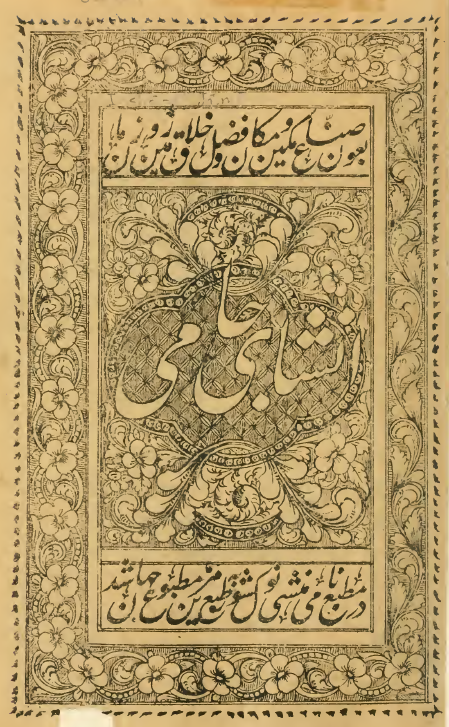 بعون صناع مکین و مکان و فضل خلاق زمین و زمان
انشای جامی
در مطبع نامی منشی نولکشور طبع مزین مطبوع جهان شد